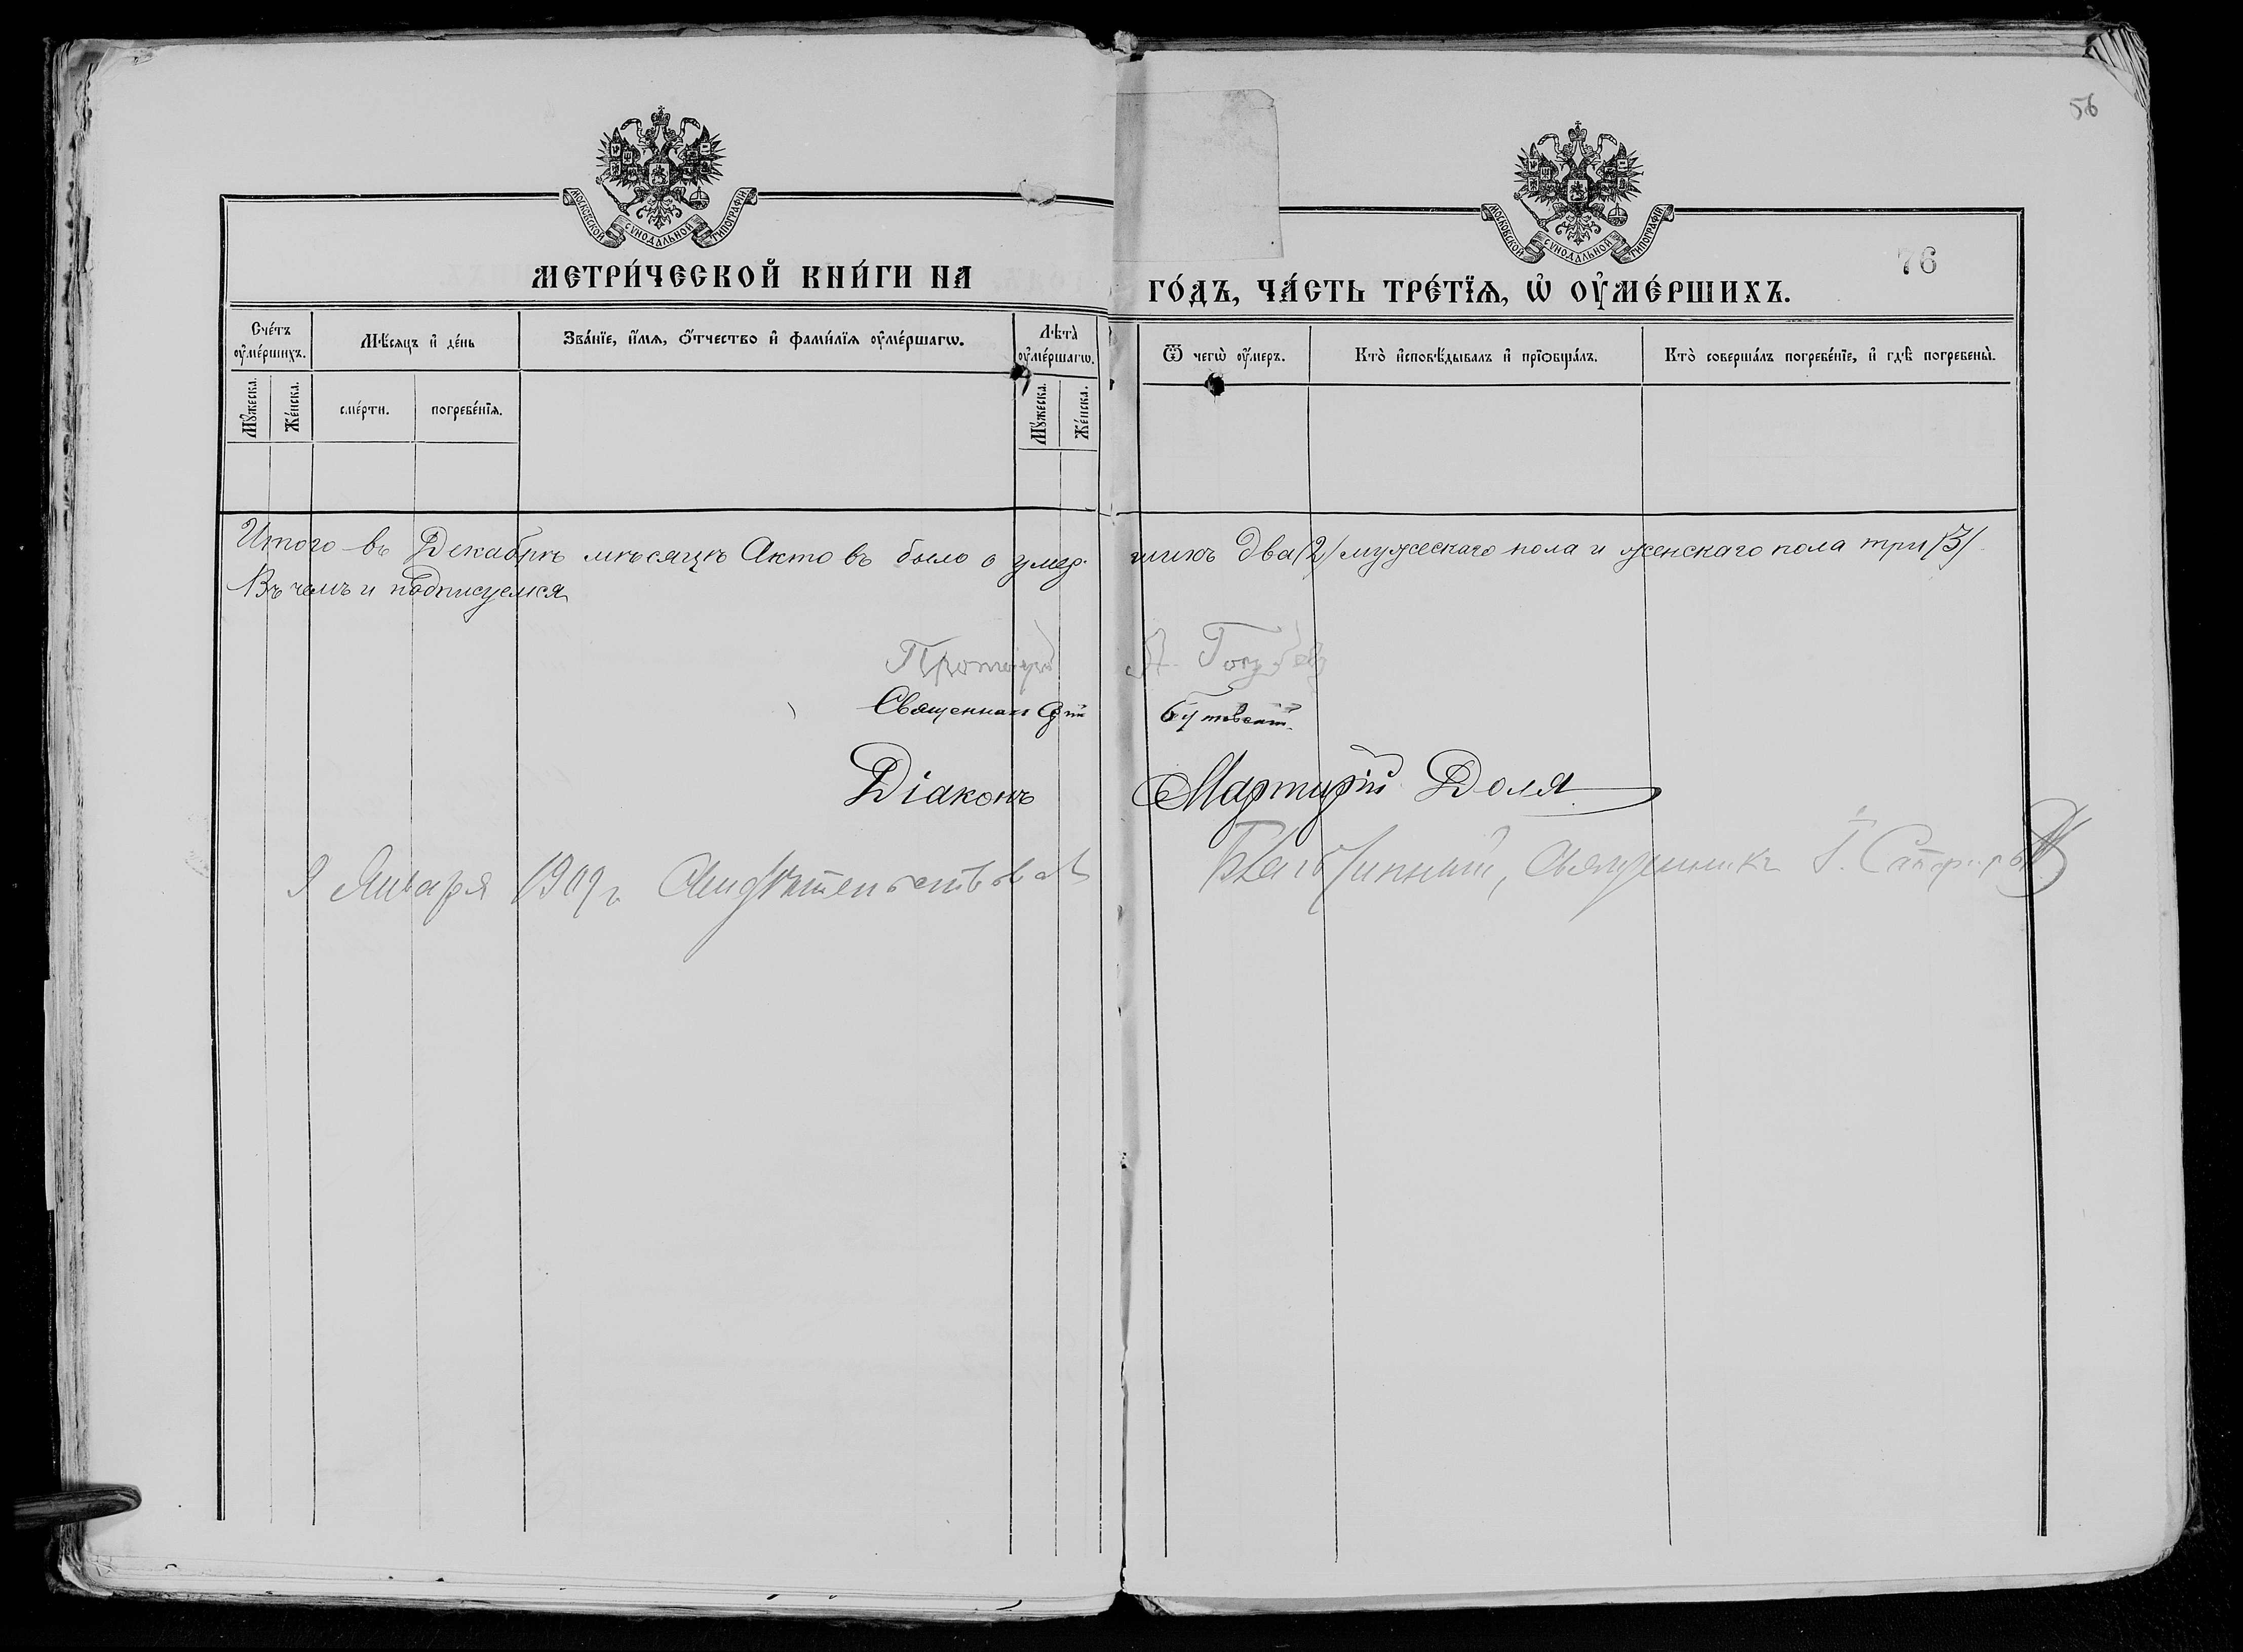 56
МОСКОВСКОЙ СѴНОДАЛЬНОЙ ТИПОГРАФІИ
МОСКОВСКОЙ СѴНОДАЛЬНОЙ ТИПОГРАФІИ
76
МЕТРИ́ЧЕСКОЙ КНИ́ГИ НА ГО́ДЪ, ЧА́СТЬ ТРЕ́ТЇѦ, Ѡ҆ ОУ҆МЕ́РШИХЪ.
Сче́тъ оу҆ме́ршихъ.
Мѣ́сяцъ и҆ де́нь
Зва́нїе, и҆́мѧ, ѻ҆́тчество и҆ фами́лїѧ оу҆ме́ршагѡ.
Лѣта̀ оу҆ме́ршагѡ.
Ѿ чегѡ̀ оу҆́меръ.
Кто̀ и҆сповѣ́дывалъ и҆ прїѻбща́лъ.
Кто̀ соверша́лъ погребе́нїе, и҆ гдѣ̀ погребены̀.
Мꙋ́жеска.
Же́нска.
сме́рти.
погребе́нїѧ.
Мꙋ́жеска.
Же́нска.
Итого въ Декабрѣ мѣсяцѣ Актовъ было о умер- шихъ два (2) мужескаго пола и женскаго пола три /3/
Въ чемъ и подписуемся
Протоіерей
Священникъ
Діаконъ Мартирій Доля
9 Января 1909 г. Свидѣтельствовалъ Благочинный, Священникъ